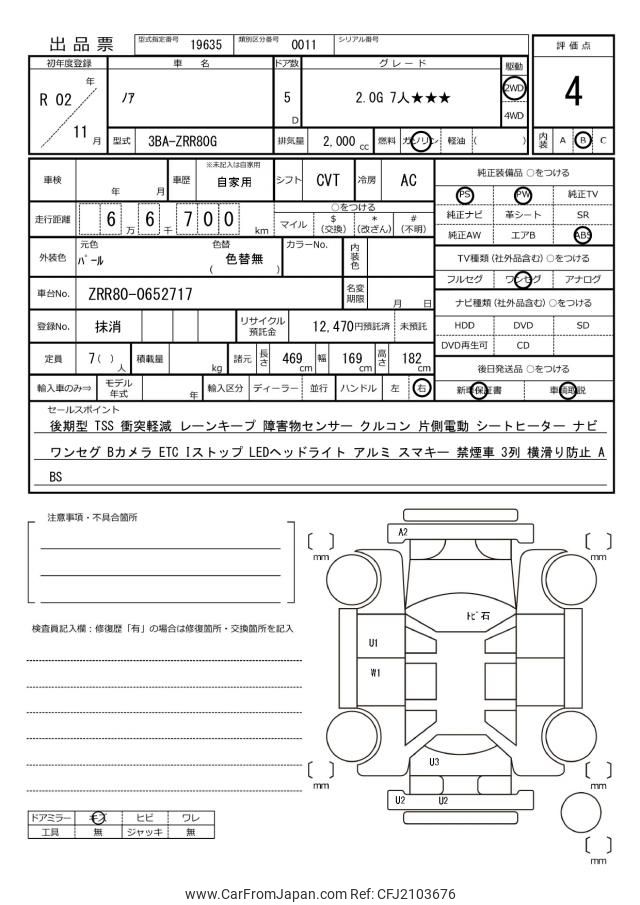 出品票
型式指定番号 19635 類別区分番号 0011 シリアル番号
評価点
4
初年度登録 車名 ドア数 グレード 駆動
R 02 年 / 11 月
ノア
5 D
2.0G 7人★★★
2WD
4WD
型式 3BA-ZRR80G 排気量 2,000 cc 燃料 ガソリン 軽油 ( )
内装 A B C
車検 年 月 車歴 ※未記入は自家用 自家用 シフト CVT 冷房 AC
走行距離 6 万 6 千 7 0 0 km
○をつける
マイル $(交換) *(改ざん) #(不明)
外装色 元色 パール 色替 ( 色替無 ) カラーNo. 内装色
車台No. ZRR80-0652717 名変期限 月 日
登録No. 抹消 リサイクル預託金 12,470円預託済 未預託
定員 7( )人 積載量 kg 諸元 長さ 469cm 幅 169cm 高さ 182cm
輸入車のみ⇒ モデル年式 年 輸入区分 ディーラー 並行 ハンドル 左 右
純正装備品 ○をつける
PS PW 純正TV
純正ナビ 革シート SR
純正AW エアB ABS
TV種類 (社外品含む) ○をつける
フルセグ ワンセグ アナログ
ナビ種類 (社外品含む) ○をつける
HDD DVD SD
DVD再生可 CD
後日発送品 ○をつける
新車保証書 車輌取説
セールスポイント
後期型 TSS 衝突軽減 レーンキープ 障害物センサー クルコン 片側電動 シートヒーター ナビ
ワンセグ Bカメラ ETC Iストップ LEDヘッドライト アルミ スマキー 禁煙車 3列 横滑り防止 A
BS
注意事項・不具合箇所
検査員記入欄：修復歴「有」の場合は修復箇所・交換箇所を記入
A2
mm
mm
トビ石
U1
W1
U3
mm
mm
U2 U2
mm
ドアミラー キズ ヒビ ワレ
工具 無 ジャッキ 無
www.CarFromJapan.com Ref: CFJ2103676